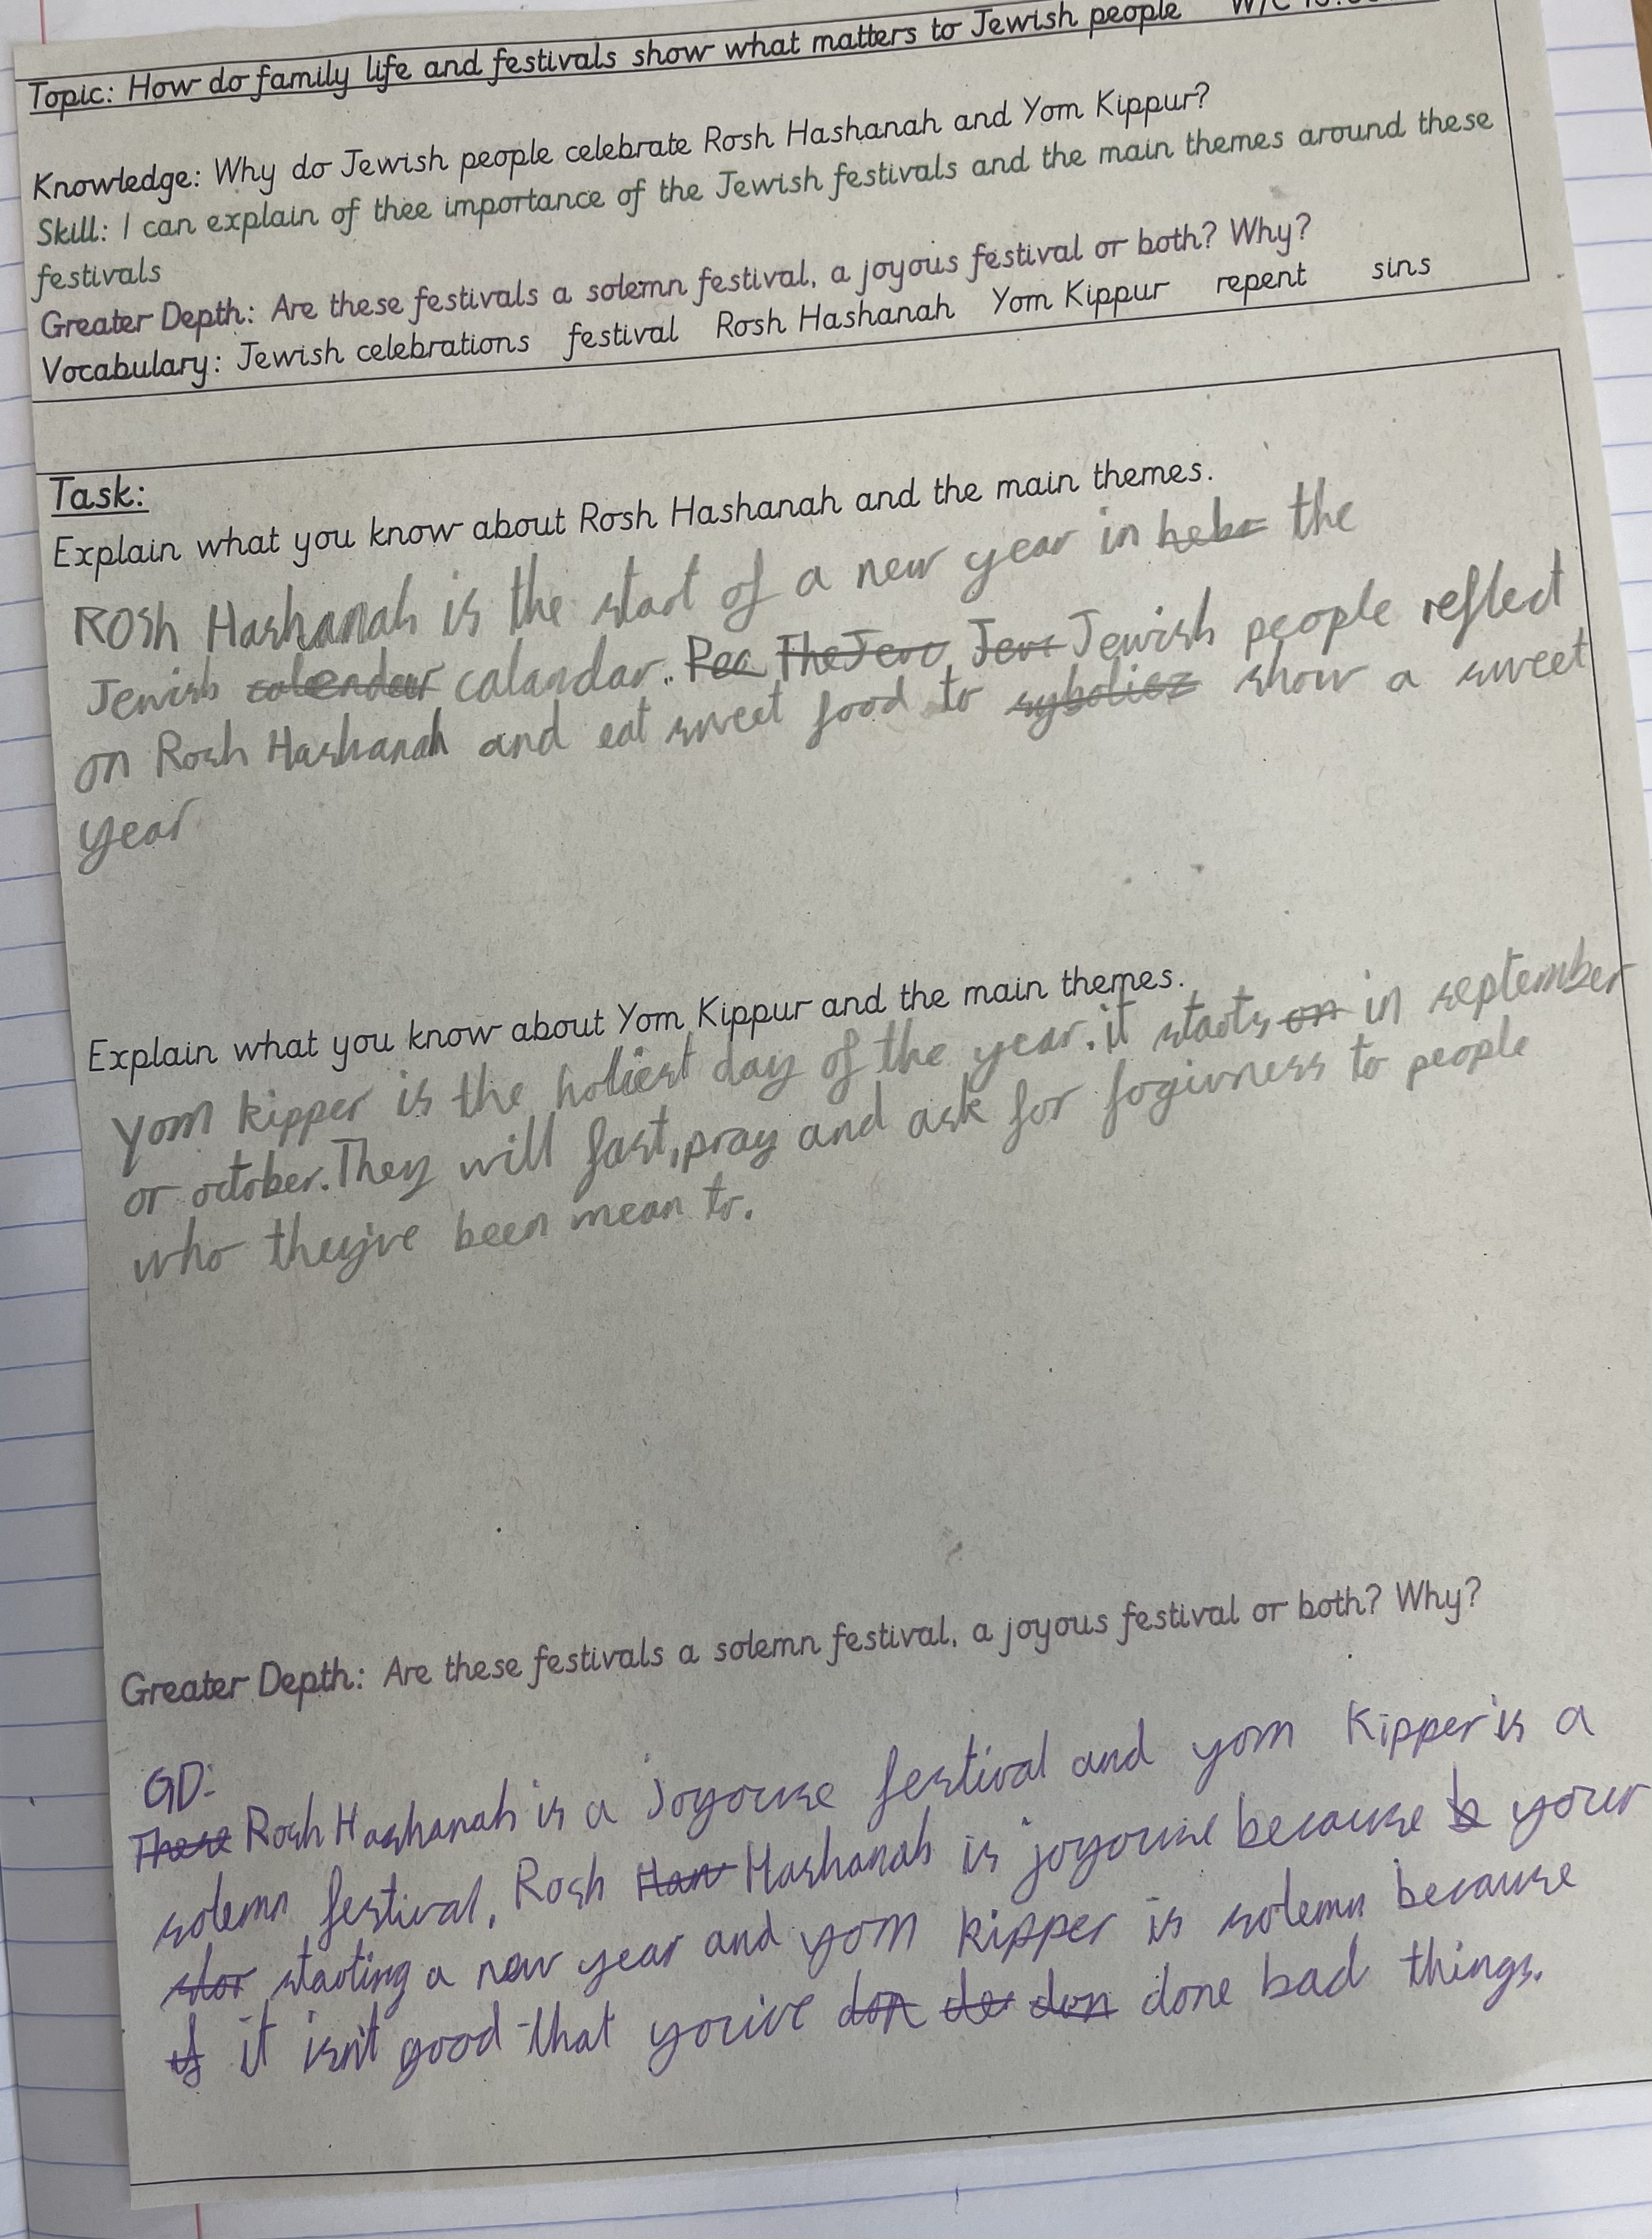 Topic: How do family life and festivals show what matters to Jewish people W/C
Knowledge: Why do Jewish people celebrate Rosh Hashanah and Yom Kippur?
Skill: I can explain of thee importance of the Jewish festivals and the main themes around these
festivals
Greater Depth: Are these festivals a solemn festival, a joyous festival or both? Why?
Vocabulary: Jewish celebrations festival Rosh Hashanah Yom Kippur repent sins
Task:
Explain what you know about Rosh Hashanah and the main themes.
Rosh Hashanah is the start of a new year in the
Jewish calandar. Jewish people reflect
on Rosh Hashanah and eat sweet food to show a sweet
year
Explain what you know about Yom Kippur and the main themes.
Yom kipper is the holiest day of the year. it starts on in september
or october. They will fast, pray and ask for fogivness to people
who they've been mean to.
Greater Depth: Are these festivals a solemn festival, a joyous festival or both? Why?
GD:
These Rosh Hashanah is a joyouse festival and yom Kipper is a
solemn festival, Rosh Han Hashanah is joyouse because b your
star starting a new year and yom kipper is solemn because
if it isn't good that you've don de don done bad things.